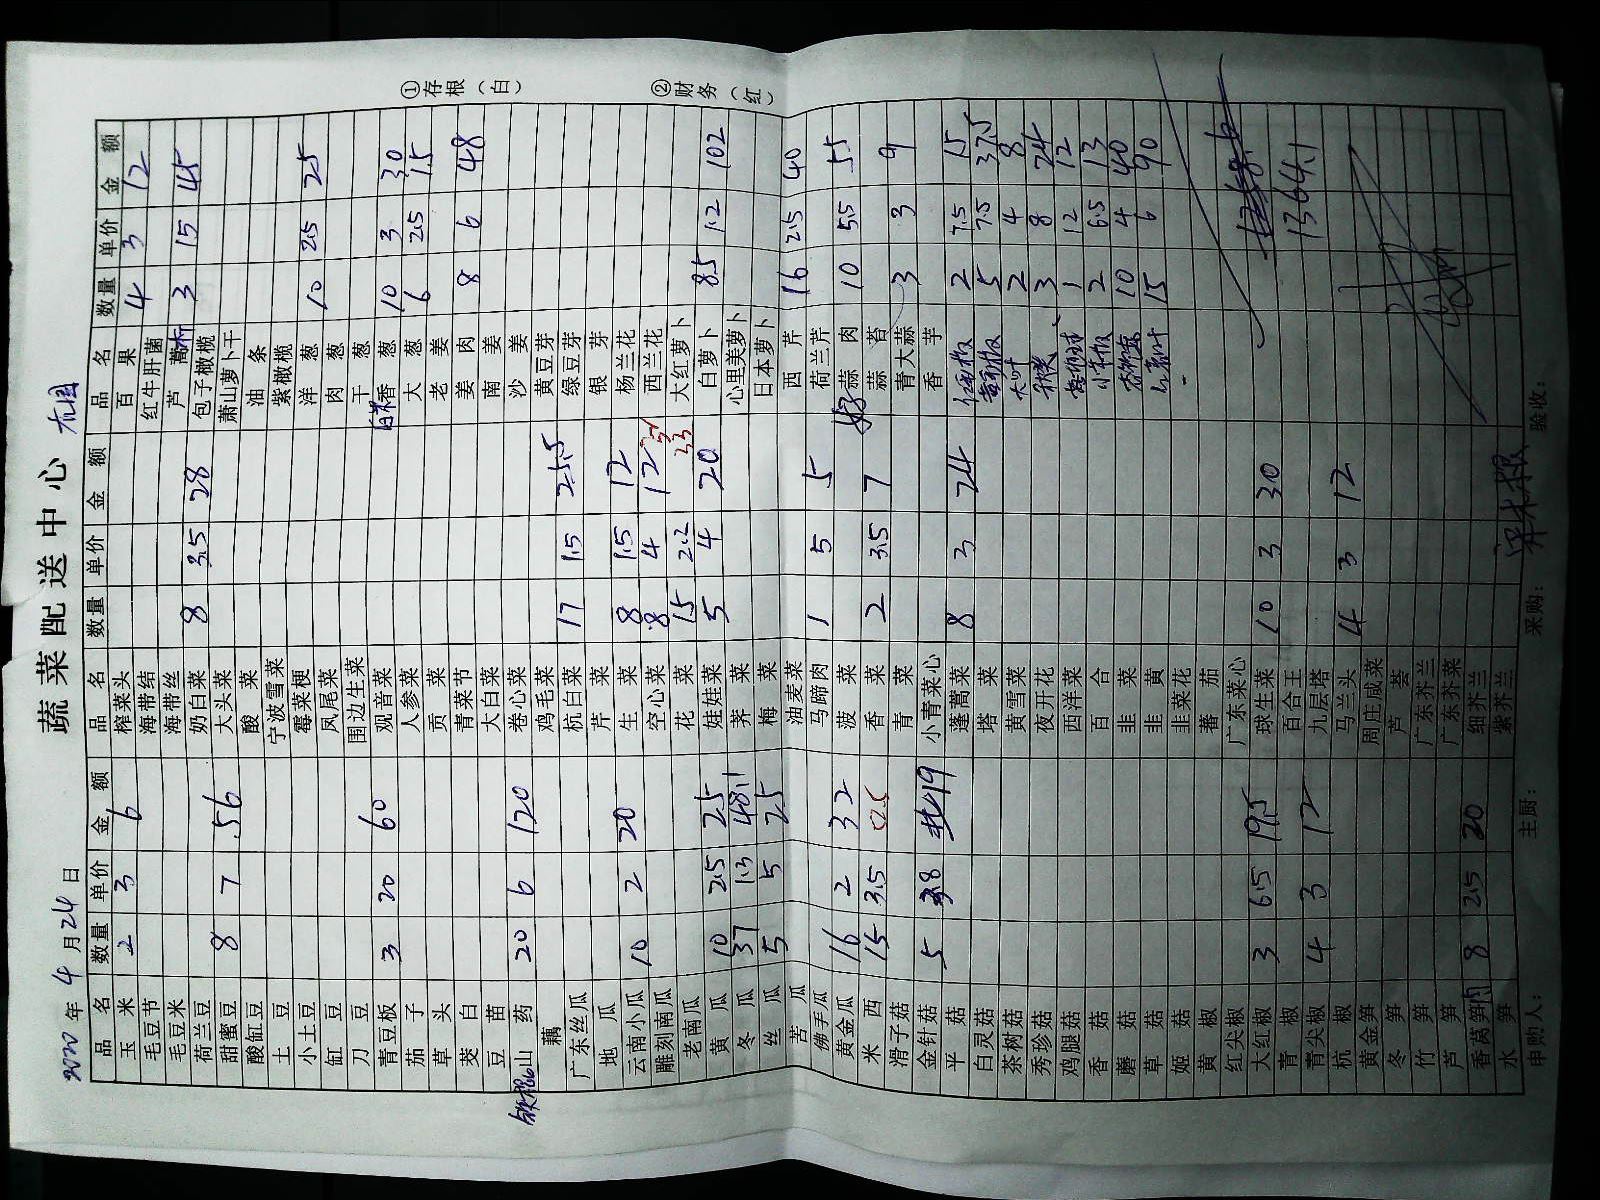 蔬菜配送中心
2020年4月24日
品名 数量 单价 金额 品名 数量 单价 金额 品名 数量 单价 金额
玉米 2 3 6 榨菜头 百果 4 3 12
毛豆节 海带结 红牛肝菌
毛豆米 海带丝 芦蒿 3 15 45
荷兰豆 奶白菜 8 3.5 28 包子橄榄
甜蜜豆 8 7 56 大头菜 萧山萝卜干
酸缸豆 酸菜 油条
土豆 宁波雪菜 紫橄榄
小土豆 霉菜梗 洋葱 10 2.5 25
缸豆 凤尾菜 肉葱
刀豆 围边生菜 干葱
青豆板 3 20 60 观音菜 香葱 10 3 30
茄子 人参菜 大葱 6 2.5 15
草头 贡菜 老姜
茭白 青菜节 姜肉 8 6 48
豆苗 大白菜 南姜
山药 20 6 120 卷心菜 沙姜
藕 鸡毛菜 黄豆芽
广东丝瓜 杭白菜 17 1.5 25.5 绿豆芽
地瓜 芹菜 银芽
云南小瓜 10 2 20 生菜 8 1.5 12 杨兰花
雕刻南瓜 空心菜 8 4 12 西兰花
老南瓜 花菜 15 2.2 33 大红萝卜
黄瓜 10 2.5 25 娃娃菜 5 4 20 白萝卜 85 1.2 102
冬瓜 37 1.3 48.1 荠菜 心里美萝卜
丝瓜 5 5 25 梅菜 日本萝卜
苦瓜 油麦菜 西芹 16 2.5 40
佛手瓜 马蹄肉 1 5 5 荷兰芹
黄金瓜 16 2 32 菠菜 蒜肉 10 5.5 55
米西 15 3.5 52.5 香菜 2 3.5 7 蒜苔
滑子菇 青菜 青大蒜 3 3 9
金针菇 5 3.8 19 小青菜心 香芋
平菇 蓬蒿菜 8 3 24 2 7.5 15
白灵菇 塔菜 5 7.5 37.5
茶树菇 黄雪菜 大叶 2 4 8
秀珍菇 夜开花 3 8 24
鸡腿菇 西洋菜 1 12 12
香菇 百合 2 6.5 13
蘑菇 韭菜 10 4 40
草菇 韭黄 15 6 90
姬菇 韭菜花
黄椒 蕃茄
红尖椒 广东菜心
大红椒 3 6.5 19.5 球生菜 10 3 30
青椒 百合王 1364.1
青尖椒 4 3 12 九层塔
杭椒 马兰头 4 3 12
黄金笋 周庄咸菜
冬笋 芦荟
竹笋 广东芥兰
芦笋 广东芥菜
香莴笋肉 8 2.5 20 细芥兰
水笋 紫芥兰
申购人： 主厨： 采购： 验收：
①存根（白）
②财务（红）